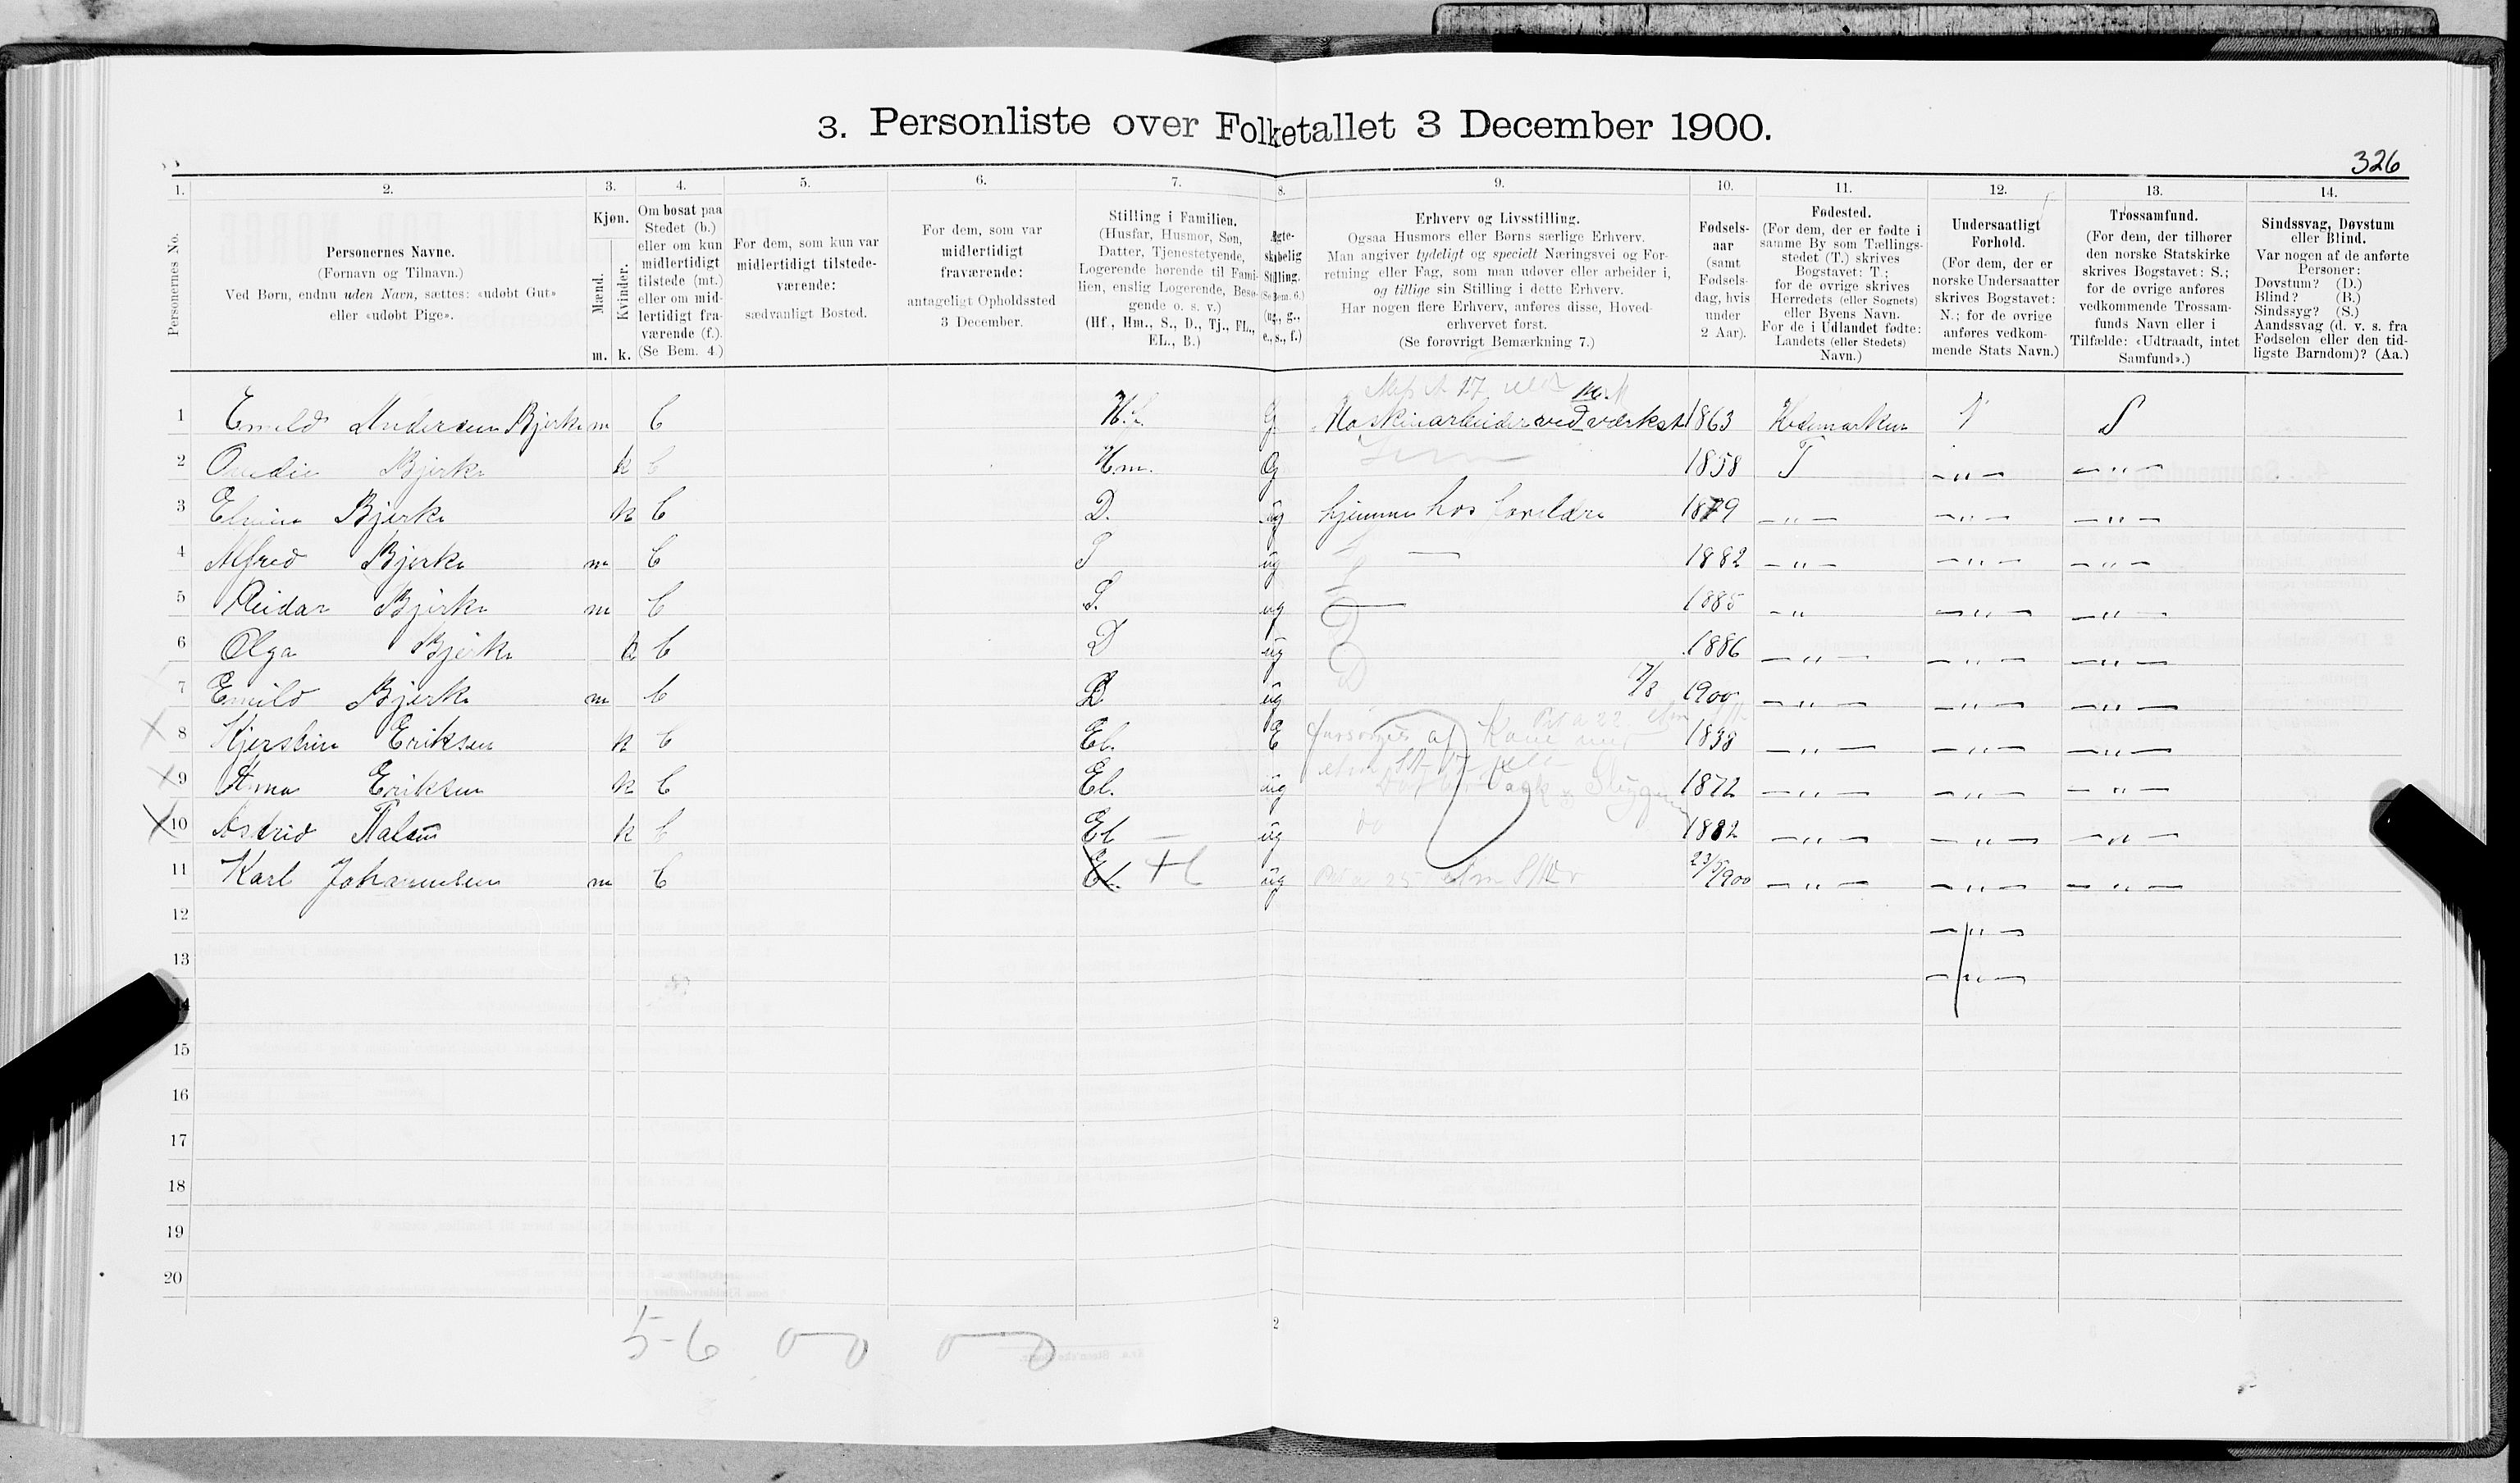 3. Personliste over Folketallet 3 December 1900.
326
1. 2. 3. 4. 5. 6. 7. 8. 9. 10. 11. 12. 13. 14.
Personernes No.
Personernes Navne.
(Fornavn og Tilnavn.)
Ved Børn, endnu uden Navn, sættes: «udøbt Gut»
eller «udøbt Pige».
Kjøn.
Mænd.
m.
Kvinder.
k.
Om bosat paa
Stedet (b.)
eller om kun
midlertidigt
tilstede (mt.)
eller om mid-
lertidigt fra-
værende (f.).
(Se Bem. 4.)
For dem, som kun var
midlertidigt tilstede-
værende:
sædvanligt Bosted.
For dem, som var
midlertidigt
fraværende:
antageligt Opholdssted
3 December.
Stilling i Familien.
(Husfar, Husmor, Søn,
Datter, Tjenestetyende,
Logerende hørende til Fami-
lien, enslig Logerende, Besø-
gende o. s. v.)
(Hf., Hm., S., D., Tj., FL.,
EL., B.)
Ægte-
skabelig
Stilling.
(Se Bem. 6.)
(ug., g.,
e., s., f.)
Erhverv og Livsstilling.
Ogsaa Husmors eller Børns særlige Erhverv.
Man angiver tydeligt og specielt Næringsvei og For-
retning eller Fag, som man udøver eller arbeider i,
og tillige sin Stilling i dette Erhverv.
Har nogen flere Erhverv, anføres disse, Hoved-
erhvervet først.
(Se forøvrigt Bemærkning 7.)
Fødsels-
aar
(samt
Fødsels-
dag, hvis
under
2 Aar).
Fødested.
(For dem, der er fødte i
samme By som Tællings-
stedet (T.) skrives
Bogstavet: T.;
for de øvrige skrives
Herredets (eller Sognets)
eller Byens Navn.
For de i Udlandet fødte:
Landets (eller Stedets)
Navn.)
Undersaatligt
Forhold.
(For dem, der er
norske Undersaatter
skrives Bogstavet:
N.; for de øvrige
anføres vedkom-
mende Stats Navn.)
Trossamfund.
(For dem, der tilhører
den norske Statskirke
skrives Bogstavet: S.;
for de øvrige anføres
vedkommende Trossam-
funds Navn eller i
Tilfælde: «Udtraadt, intet
Samfund».)
Sindssvag, Døvstum
eller Blind.
Var nogen af de anførte
Personer:
Døvstum? (D.)
Blind? (B.)
Sindssyg? (S.)
Aandssvag (d. v. s. fra
Fødselen eller den tid-
ligste Barndom)? (Aa.)
1 Emild Andersen Bjerke m b G Maskinarbeider ved værkst 1863 Hedemarken N S
2 Bjerke k b Hm. G 1858 T -"- -"-
3 Bjerke k b D. ug hjemme hos forældre 1879 -"- -"- -"-
4 Alfred Bjerke m b S ug — 1882 -"- -"- -"-
5 Reidar Bjerke m b S. ug — 1885 -"- -"- -"-
6 Olga Bjerke k b D ug 1886 -"- -"- -"-
7 Emild Bjerke m b ug 1900 -"- -"- -"-
8 Kjerstine Eriksen k b El. E forsørges af 1838 -"- -"- -"-
9 Anna Eriksen k b El. ug 1872 -"- -"- -"-
10 Astrid k b El ug 1882 -"- -"- -"-
11 Karl Johannesen m b El. ug 23/5 1900 -"- -"- -"-
12 -"-
13 -"-
14
15
16
17
18
19
20
5-6 0—0 0—0
2